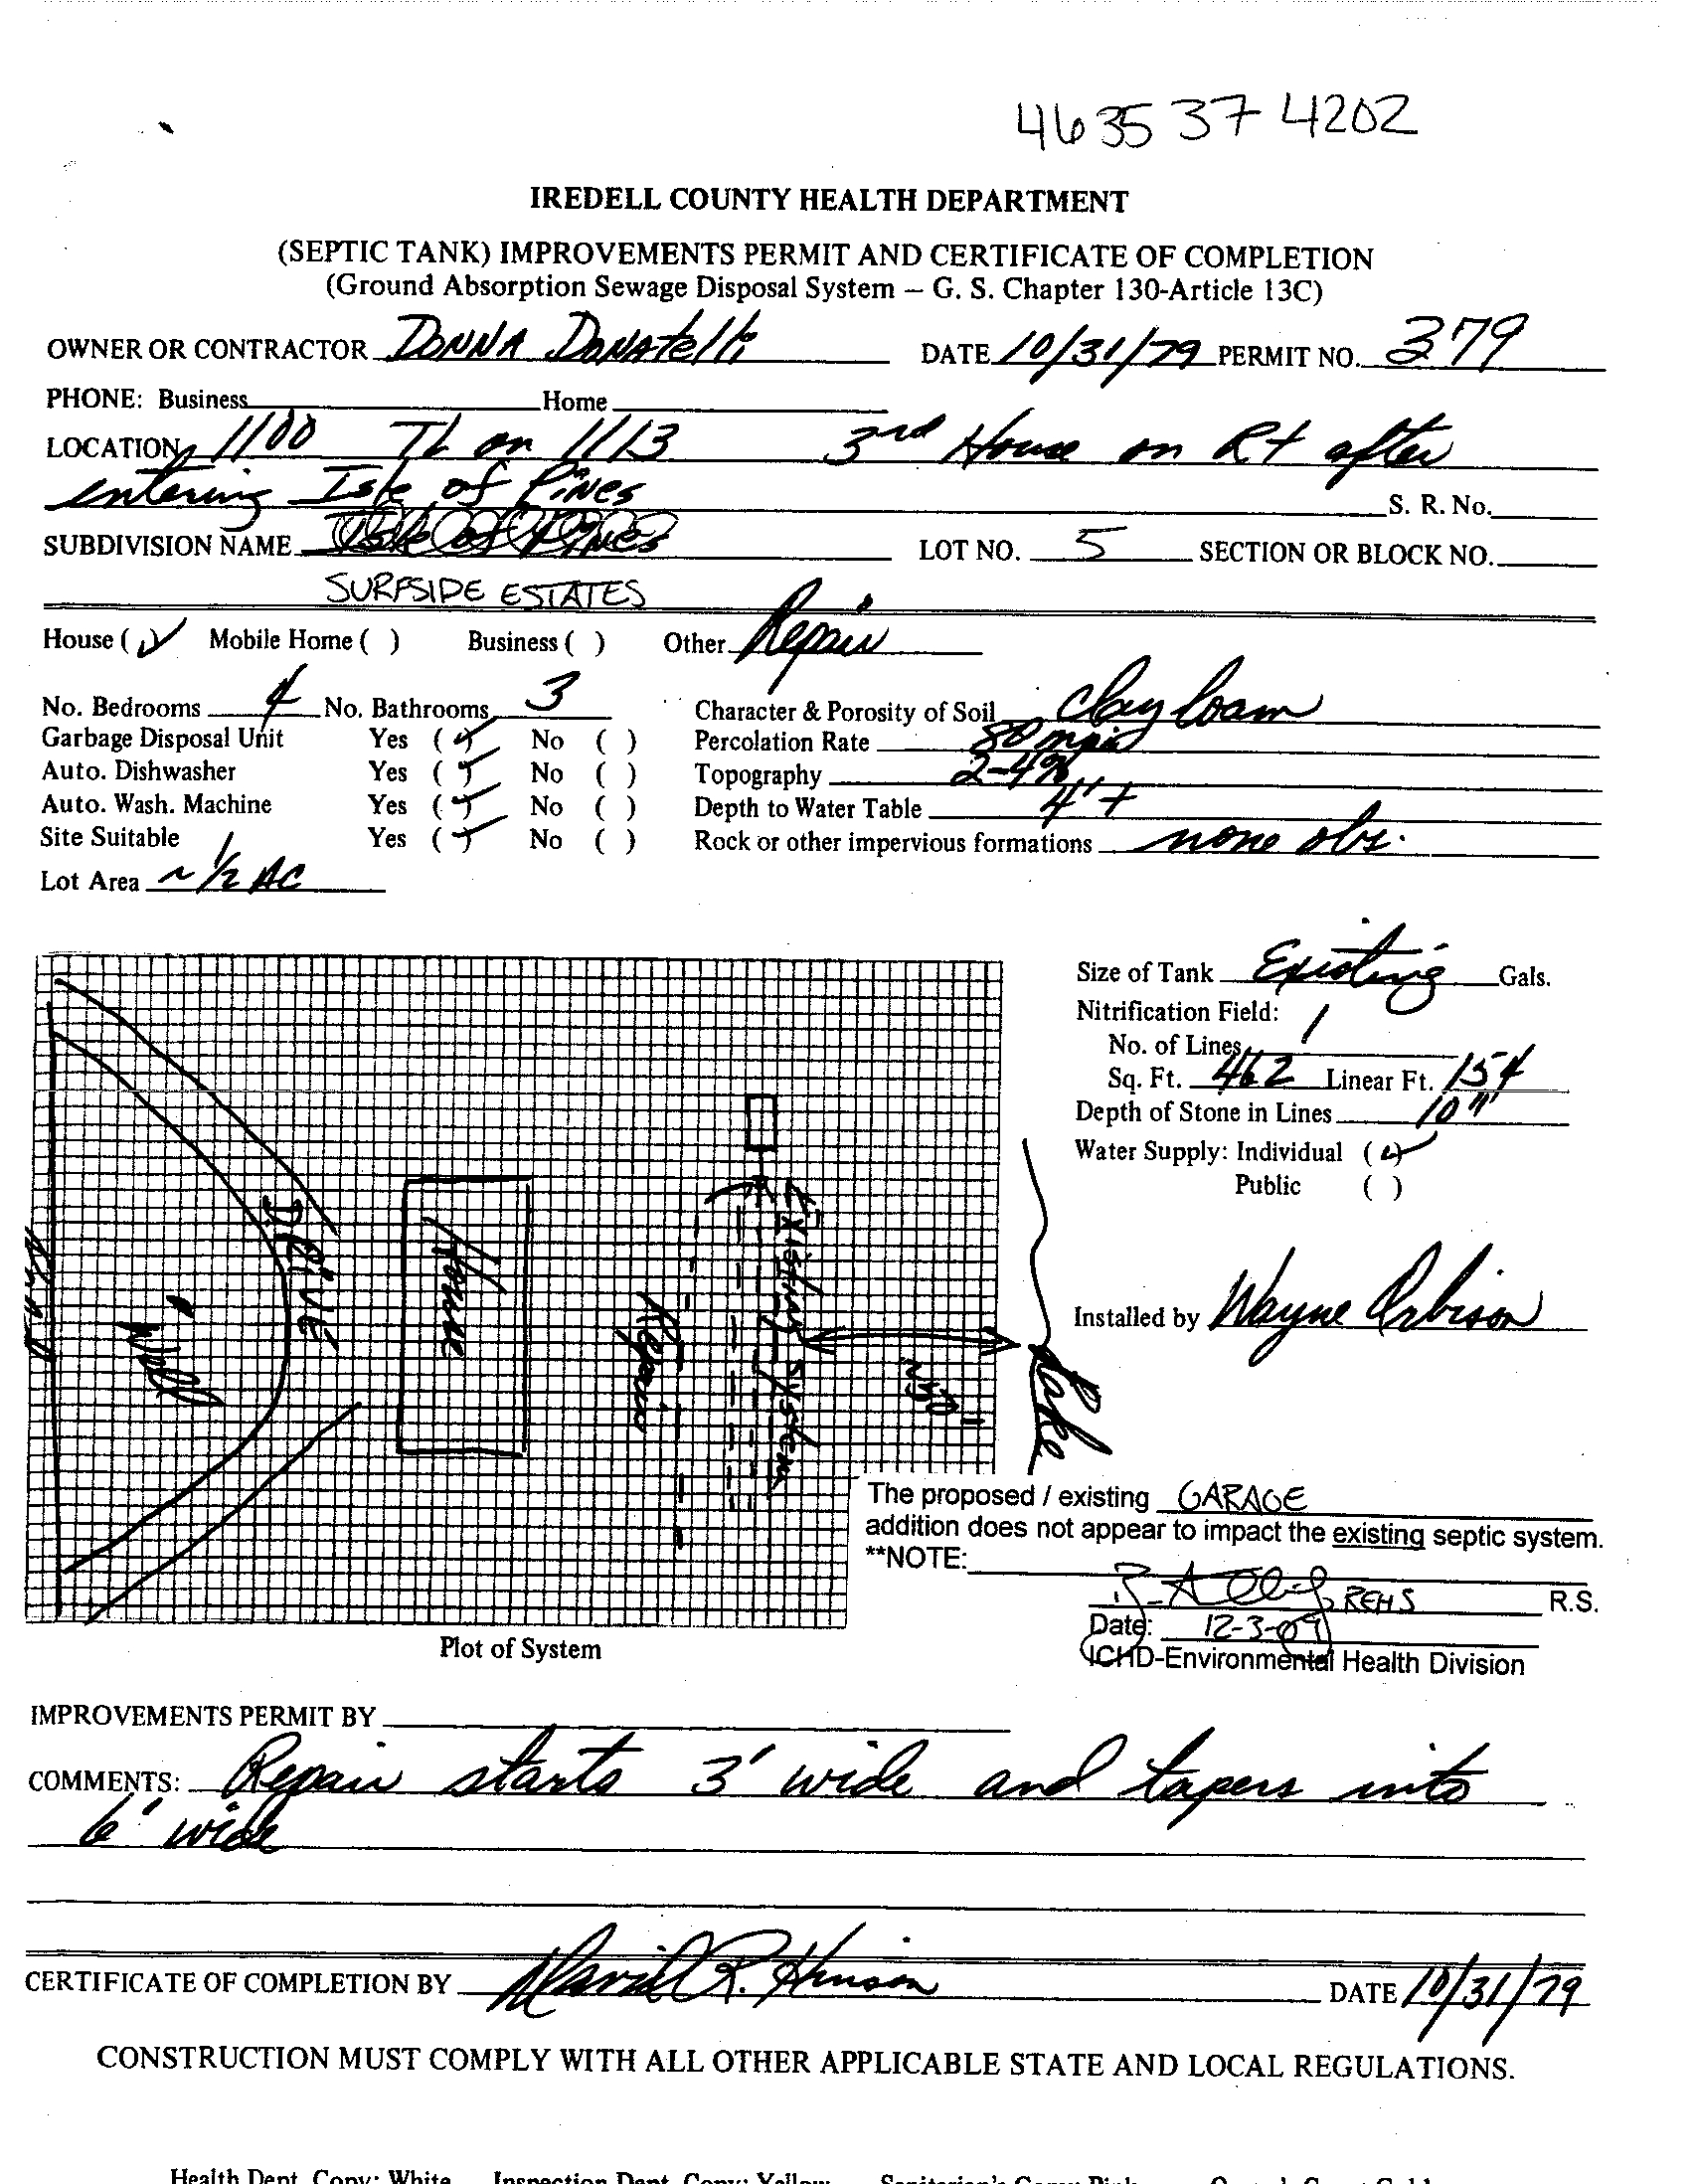 4635 37 4202
IREDELL COUNTY HEALTH DEPARTMENT
(SEPTIC TANK) IMPROVEMENTS PERMIT AND CERTIFICATE OF COMPLETION
(Ground Absorption Sewage Disposal System – G. S. Chapter 130-Article 13C)
OWNER OR CONTRACTOR DONNA DONATelli DATE 10/31/79 PERMIT NO. 379
PHONE: Business Home
LOCATION 1100 TL on 1113 3rd House on Rt after
entering Isle of Pines S. R. No.
SUBDIVISION NAME Isle of Pines LOT NO. 5 SECTION OR BLOCK NO.
SURFSIDE ESTATES
House (✓) Mobile Home ( ) Business ( ) Other Repair
No. Bedrooms 4 No. Bathrooms 3 Character & Porosity of Soil Clay loam
Garbage Disposal Unit Yes (✓) No ( ) Percolation Rate 80 mpi
Auto. Dishwasher Yes (✓) No ( ) Topography 2-4%
Auto. Wash. Machine Yes (✓) No ( ) Depth to Water Table 4'+
Site Suitable Yes (✓) No ( ) Rock or other impervious formations none obs.
Lot Area ~ 1/2 AC
Size of Tank Existing Gals.
Nitrification Field:
No. of Lines 1
Sq. Ft. 462 Linear Ft. 154
Depth of Stone in Lines 10"
Water Supply: Individual (✓)
Public ( )
Installed by Wayne Orbison
Road
Well
DRIVE
House
Repair
Existing System
Lake
The proposed / existing GARAGE
addition does not appear to impact the existing septic system.
**NOTE:
REHS R.S.
Date: 12-3-09
ICHD-Environmental Health Division
Plot of System
IMPROVEMENTS PERMIT BY
COMMENTS: Repair starts 3' wide and tapers into
6' wide
CERTIFICATE OF COMPLETION BY David R. Henson DATE 10/31/79
CONSTRUCTION MUST COMPLY WITH ALL OTHER APPLICABLE STATE AND LOCAL REGULATIONS.
Health Dept. Copy: White Inspection Dept. Copy: Yellow